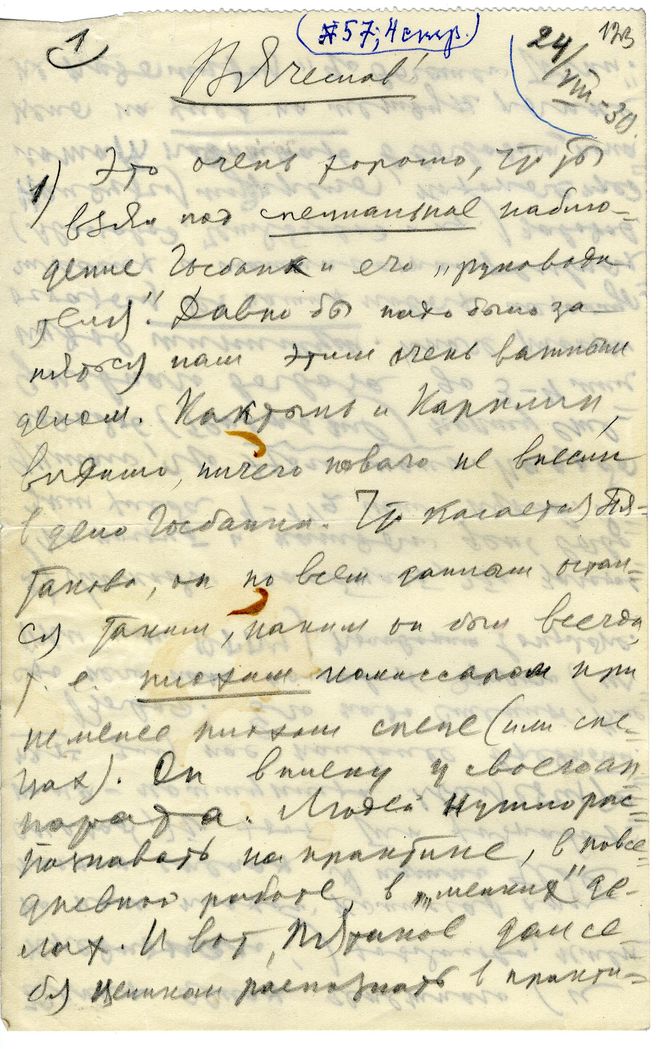 1
#57; 4 стр.
24/VIII-30.
123
Вячеслав!
1) Это очень хорошо, что ты
взял под специальное наблю-
дение Госбанк и его „руководи
теля". Давно бы надо было за-
няться нам этим очень важным
делом. Кактынь и Карклин,
видимо, ничего нового не внесли
в дело Госбанка. Что касается Пя-
такова, он по всем данным остал-
ся таким, каким он был всегда,
т. е. плохим комиссаром при
не менее плохом спеце (или спе-
цах). Он в плену у своего ап-
парата. Людей нужно рас-
познавать на практике, в повсе-
дневной работе, в „мелких" де-
лах. И вот, Пятаков дал се-
бя целиком распознать в практи-